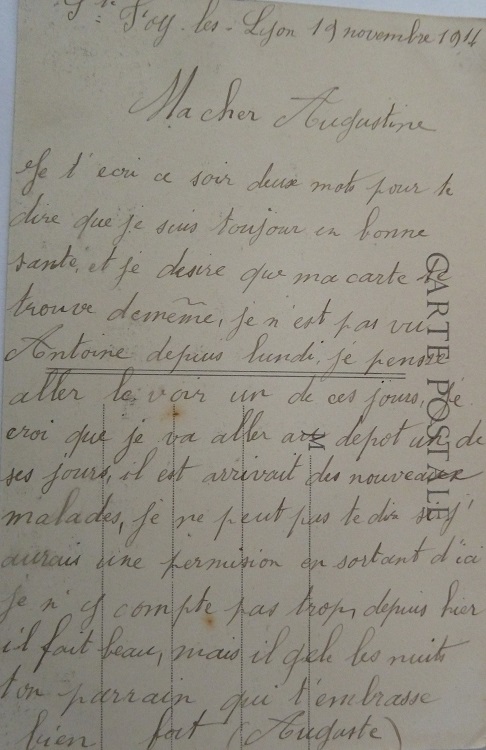 Ste Foy-les-Lyon 19 novembre 1914
Ma cher Augustine
Je t'ecri ce soir deux mots pour te
dire que je suis toujour en bonne
santé, et je desire que ma carte te
trouve demême, je n'est pas vu
Antoine depuis lundi, je pense
aller le voir un de ces jours, Je
croi que je va aller au depot un de
ses jours, il est arrivait des nouveaux
malades, je ne peut pas te dire si j'
aurais une permision en sortant d'ici
je n'y compte pas trop, depuis hier
il fait beau, mais il gele les nuits
ton parrain qui t'embrasse
bien fort (Auguste)
CARTE POSTALE
M